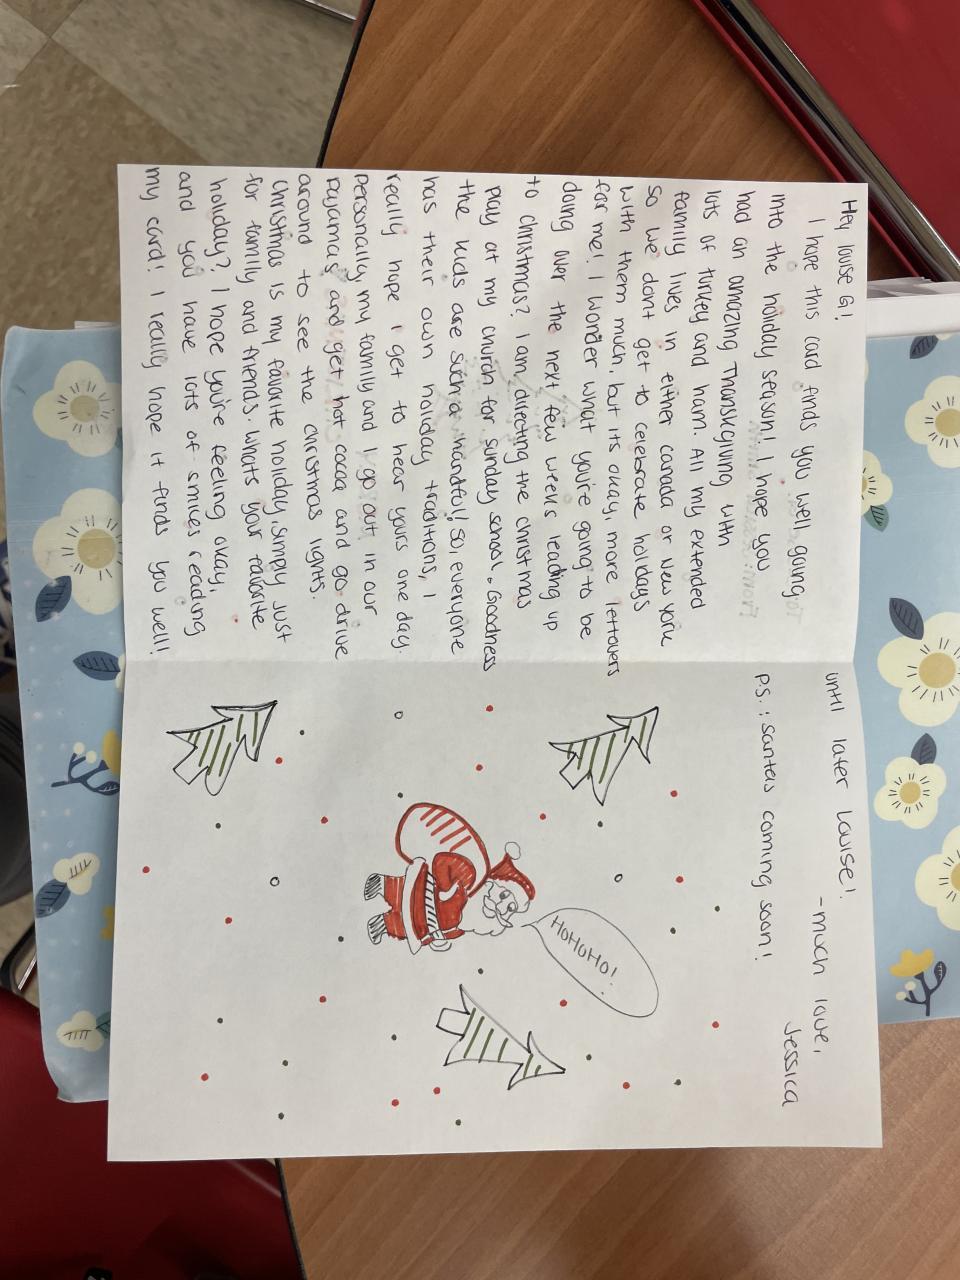 Hey Louise G!
I hope this card finds you well, going
into the holiday season! I hope you
had an amazing Thanksgiving with
lots of turkey and ham. All my extended
family lives in either canada or New York
so we dont get to celebrate holidays
with them much, but its okay, more leftovers
for me! I wonder what you're going to be
doing over the next few weeks leading up
to christmas? I am directing the christmas
play at my church for sunday school. Goodness
the kids are such a handful! So, everyone
has their own holiday traditions, I
really hope I get to hear yours one day.
Personally, my family and I go out in our
pajamas and get hot cocoa and go drive
around to see the christmas lights.
Christmas is my favorite holiday, simply just
for family and friends. Whats your favorite
holiday? I hope you're feeling okay,
and you have lots of smiles reading
my card! I really hope it finds you well!
until later Louise!
-much love,
Jessica
P.S.: Santas coming soon!
HoHoHo!